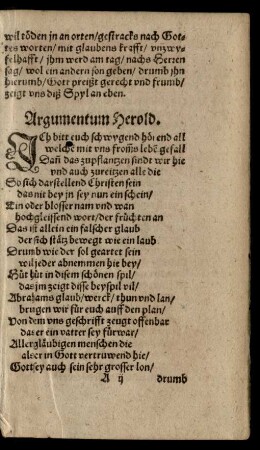 wil töden jn an orten/gestracks nach Got-
tes worten/ mit glaubens krafft/ vnzwy-
felhafft/ jhm werd am tag/ nachs Herren
sag/ wol ein andern son geben/ drumb jhn
hierumb/ Gott preißt gerecht vnd frumb/
zeigt vns diß Spyl an eben.
Argumentum Herold.
ICh bitt euch schwygend hörend all
welche mit vns fromms lebē gefall
Dañ das zupflantzen sindt wir hie
vnd auch zureitzen alle die
So sich darstellend Christen sein
das nit bey jn sey nun ein schein/
Ein oder blosser nam vnd wan
hochgleissend wort/ der früchten an
Das ist allein ein falscher glaub
der sich stätz bewegt wie ein laub
Drumb wie der sol gearter sein
wil jeder abnemmen hie bey/
Hüt hüt in disem schönen spil/
das jm zeigt disse beyspil vil/
Abrahams glaub/ werck/ thun vnd lan/
bringen wir für euch auff den plan/
Von dem vns geschrifft zeugt offenbar
das er ein vatter sey fürwar/
Allergläubigen menschen die
also in Gott vertruwend hie/
Gott sey auch sein sehr grosser lon/
A ij drumb